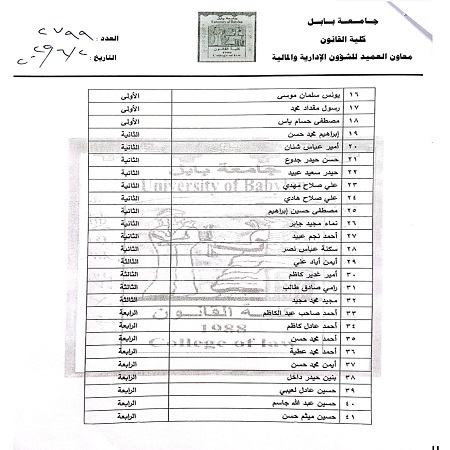 جامعة بابل
كلية القانون
معاون العميد للشؤون الإدارية والمالية
جامعة بابل
University of Babylon
كلية القانون
College of law
العدد: ٢٧٩٩
التاريخ:
١٦ يونس سلمان موسى الأولى
١٧ رسول مقداد محمد الأولى
١٨ مصطفى حسام ياس الأولى
١٩ إبراهيم محمد حسن الثانية
٢٠ أمير عباس شنان الثانية
٢١ حسن حيدر جدوع الثانية
٢٢ حيدر سعيد عبيد الثانية
٢٣ علي صلاح مهدي الثانية
٢٤ علي صلاح هادي الثانية
٢٥ مصطفى حسين إبراهيم الثانية
٢٦ نماء مجيد جابر الثانية
٢٧ أحمد نجم عبيد الثانية
٢٨ سكنة عباس نصر الثانية
٢٩ أيمن أياد علي الثالثة
٣٠ أمير غدير كاظم الثالثة
٣١ رامي صادق طالب الثالثة
٣٢ مجيد محمد مجيد الثالثة
٣٣ أحمد صاحب عبد الكاظم الرابعة
٣٤ أحمد عادل كاظم الرابعة
٣٥ أحمد محمد حسن الرابعة
٣٦ أحمد محمد عطية الرابعة
٣٧ أيمن محمد حسن الرابعة
٣٨ بنين حيدر داخل الرابعة
٣٩ حسين عادل لعيبي الرابعة
٤٠ حسين عبد الله جاسم الرابعة
٤١ حسين ميثم حسن الرابعة
جامعة بابل
University of Baby
ة القانون
1988
College of law